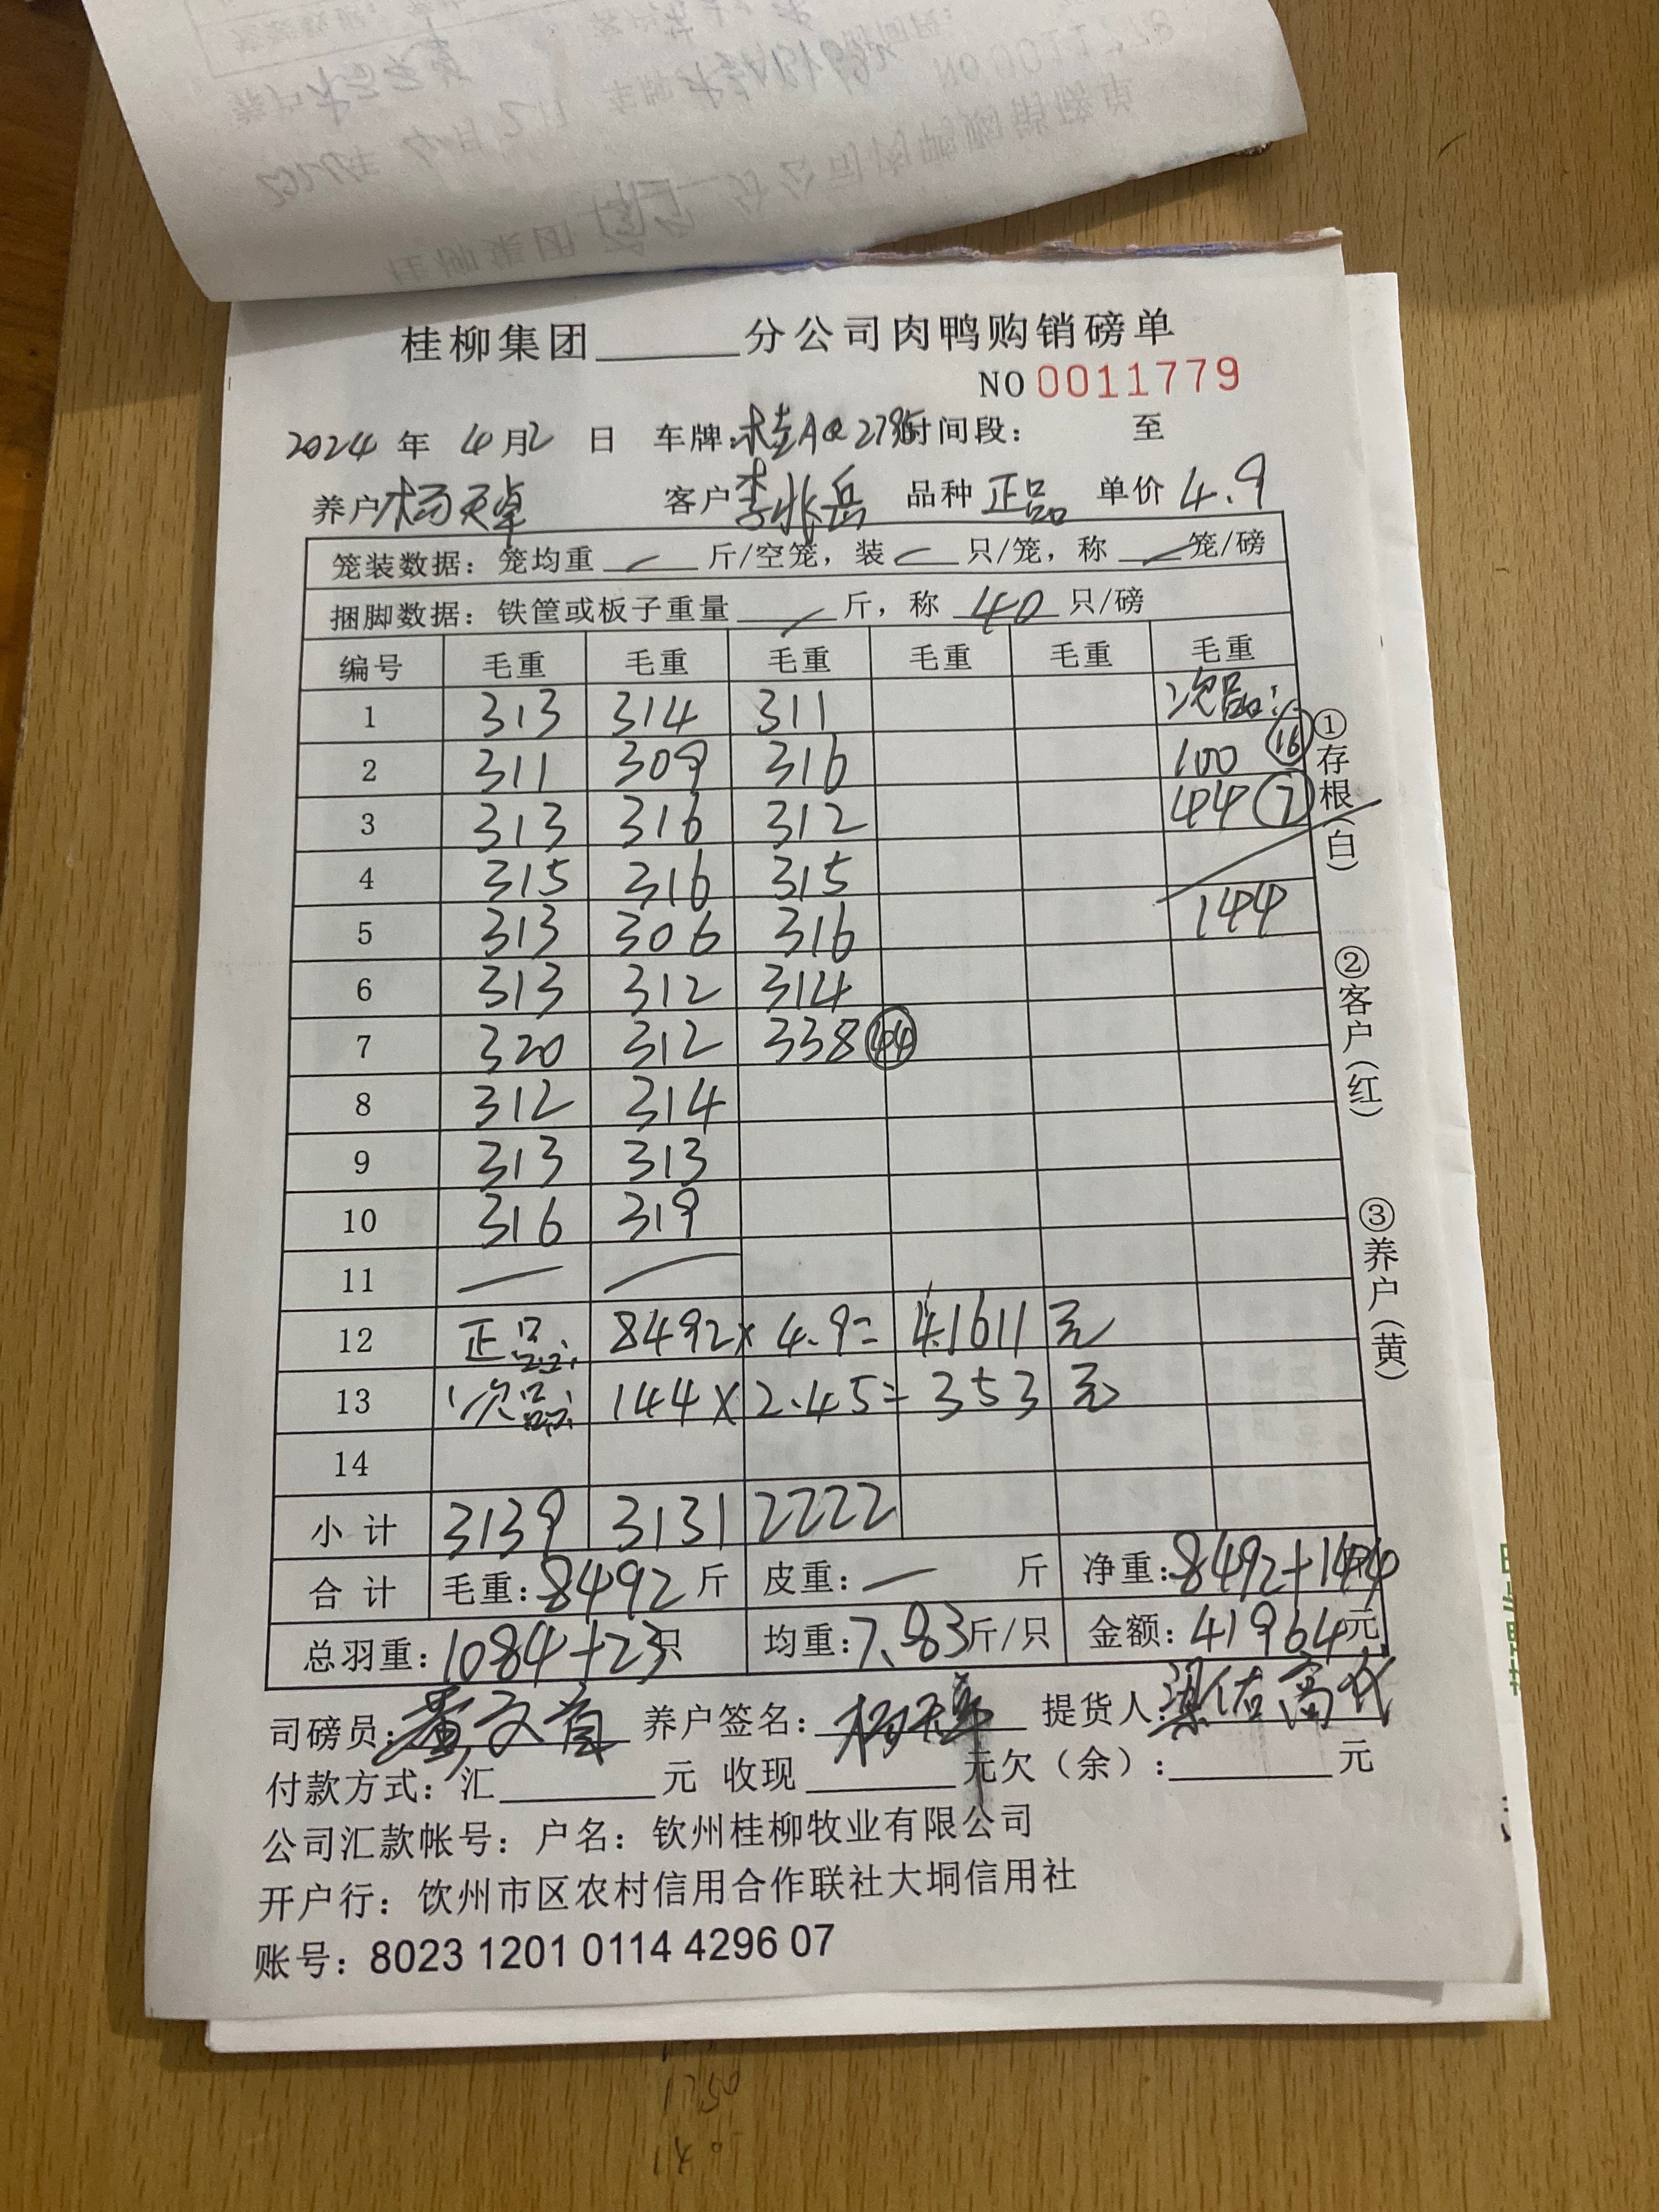 桂柳集团______分公司肉鸭购销磅单
NO 0011779
2024 年 4 月 2 日 车牌: 桂A 时间段: 至
养户 杨天卓 客户 李兆岳 品种 正品 单价 4.9
笼装数据: 笼均重 — 斤/空笼, 装 — 只/笼, 称 — 笼/磅
捆脚数据: 铁筐或板子重量 — 斤, 称 40 只/磅
编号 毛重 毛重 毛重 毛重 毛重 毛重
1 313 314 311 次品:
2 311 309 316 100 ⑯
3 313 316 312 44 ⑦
4 315 316 315
5 313 306 316 144
6 313 312 314
7 320 312 338 ㊹
8 312 314
9 313 313
10 316 319
11 — —
12 正品: 8492 × 4.9 = 41611 元
13 次品: 144 × 2.45 = 353 元
14
小计 3139 3131 2222
合计 毛重: 8492 斤 皮重: — 斤 净重: 8492+144
总羽重: 1084+23 只 均重: 7.83 斤/只 金额: 41964 元
司磅员: 黄文 养户签名: 杨天卓 提货人: 梁佑高代
付款方式: 汇______元 收现______元 欠（余）:______元
公司汇款帐号: 户名: 钦州桂柳牧业有限公司
开户行: 钦州市区农村信用合作联社大垌信用社
账号: 8023 1201 0114 4296 07
①存根（白）
②客户（红）
③养户（黄）
1250